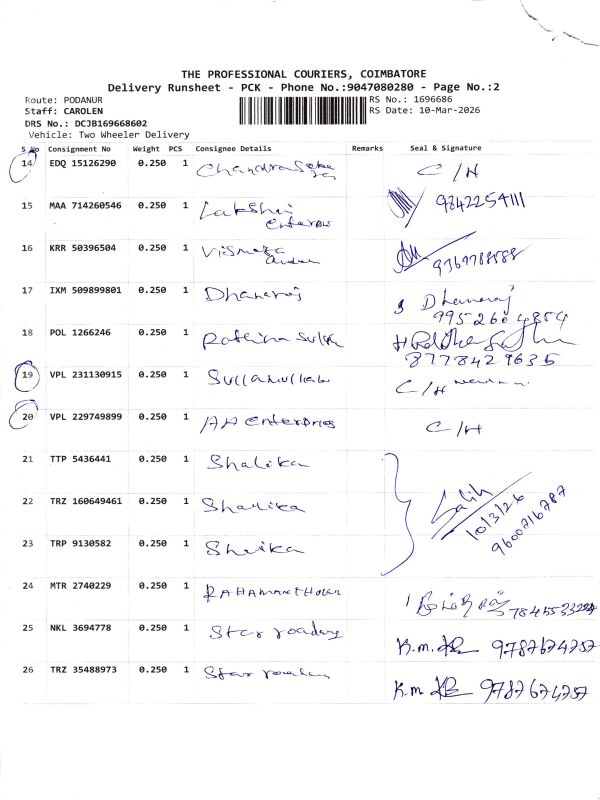 THE PROFESSIONAL COURIERS, COIMBATORE
Delivery Runsheet - PCK - Phone No.:9047080280 - Page No.:2
Route: PODANUR
RS No.: 1696686
Staff: CAROLEN
RS Date: 10-Mar-2026
DRS No.: DCJB169668602
Vehicle: Two Wheeler Delivery
S No Consignment No Weight PCS Consignee Details Remarks Seal & Signature
14 EDQ 15126290 0.250 1 C/H
15 MAA 714260546 0.250 1 9842254111
16 KRR 50396504 0.250 1
17 IXM 509899801 0.250 1 Dhanaraj Dhanaraj
9952604854
18 POL 1266246 0.250 1
8778429635
19 VPL 231130915 0.250 1 C/H
20 VPL 229749899 0.250 1 AA enterprises C/H
21 TTP 5436441 0.250 1 Shalika
22 TRZ 160649461 0.250 1 Shalika Salih
10/3/26
9600716787
23 TRP 9130582 0.250 1
24 MTR 2740229 0.250 1
25 NKL 3694778 0.250 1 Star K.m. 9787674757
26 TRZ 35488973 0.250 1 Star K.m 9787674757